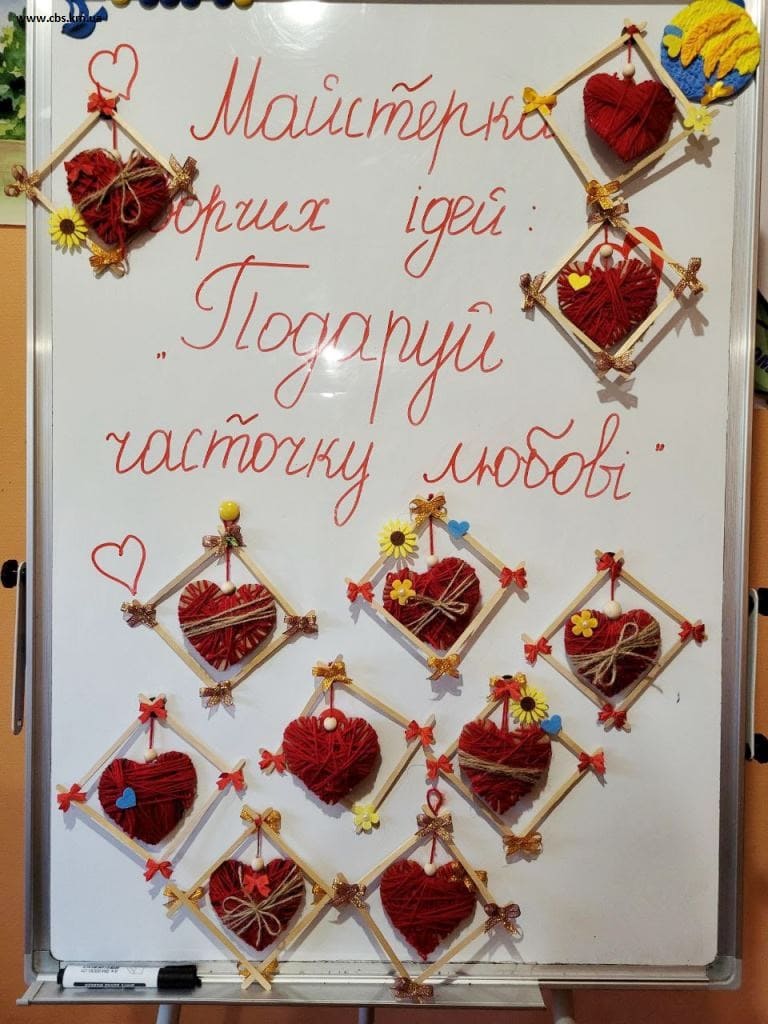 www.cbs.km.ua
Майстерка
орчих ідей:
„Подаруй
часточку любові"